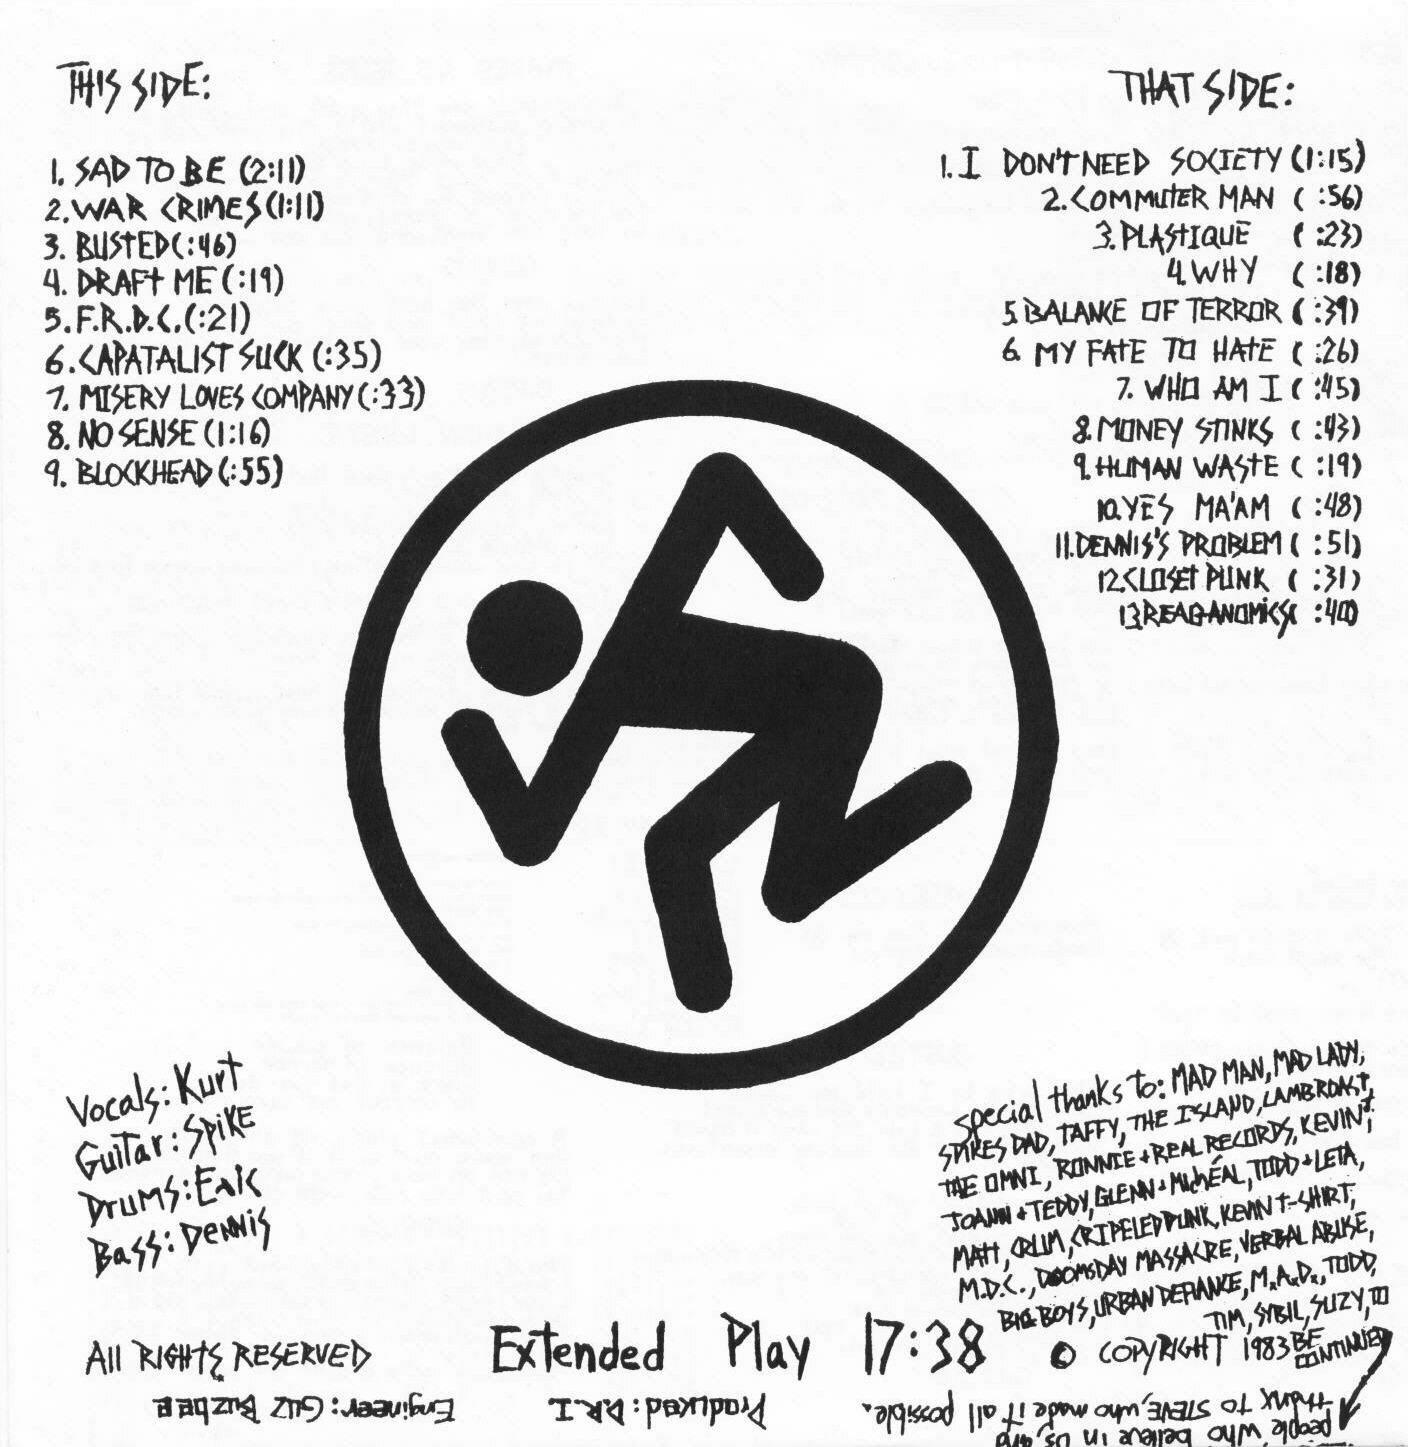 THIS SIDE:
1. SAD TO BE (2:11)
2. WAR CRIMES (1:11)
3. BUSTED (:46)
4. DRAFT ME (:19)
5. F.R.D.C. (:21)
6. CAPATALIST SUCK (:35)
7. MISERY LOVES COMPANY (:33)
8. NO SENSE (1:16)
9. BLOCKHEAD (:55)
THAT SIDE:
1. I DON'T NEED SOCIETY (1:15)
2. COMMUTER MAN ( :56)
3. PLASTIQUE ( :23)
4. WHY ( :18)
5. BALANCE OF TERROR ( :39)
6. MY FATE TO HATE ( :26)
7. WHO AM I ( :45)
8. MONEY STINKS ( :43)
9. HUMAN WASTE ( :19)
10. YES MA'AM ( :48)
11. DENNIS'S PROBLEM ( :51)
12. CLOSET PUNK ( :31)
13. REAGANOMICS ( :40)
Vocals: Kurt
Guitar: SPIKE
Drums: Eric
Bass: Dennis
special thanks to: MAD MAN, MAD LADY,
SPIKES DAD, TAFFY, THE ISLAND, LAMBROAST,
THE OMNI, RONNIE + REAL RECORDS, KEVIN
JOANN + TEDDY, GLENN + MICHÉAL, TODD + LETA,
MATT, CRUM, CRIPELED PUNK, KEVIN T-SHIRT,
M.D.C., DOOMSDAY MASSACRE, VERBAL ABUSE,
BIG BOYS, URBAN DEFIANCE, M.A.D., TODD,
TIM, SYBIL, SUZY, TO
BE
CONTINUED
All RIGHTS RESERVED
Extended Play 17:38
© COPYRIGHT 1983
Engineer: GUZ BUZBEE
Produced: D.R.I.
people who believe in us, and
thanx to STEVE, who made it all possible.